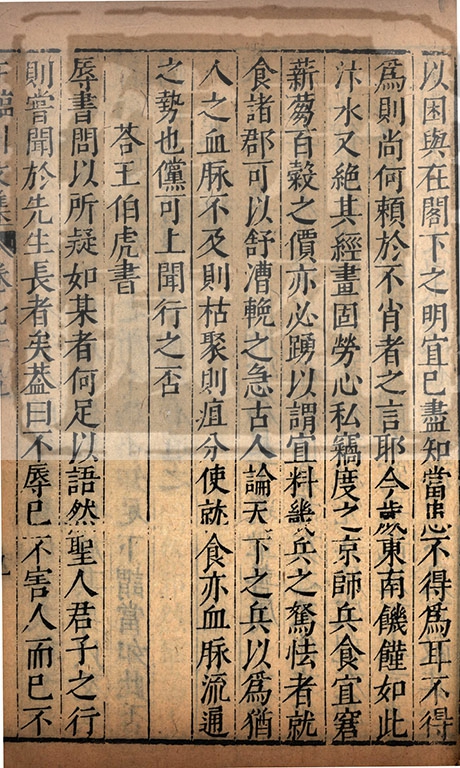 以困與在閣下之明宜已盡知當患不得為耳不得
為則尚何賴於不肖者之言耶今歲東南饑饉如此
汴水又絕其經畫固勞心私竊度之京師兵食宜窘
薪蒭百穀之價亦必踴以謂宜料畿兵之駑怯者就
食諸郡可以舒漕輓之急古人論天下之兵以為猶
人之血脉不及則枯聚則疽分使就食亦血脉流通
之勢也儻可上聞行之否
荅王伯虎書
辱書問以所疑如某者何足以語然聖人君子之行
則嘗聞於先生長者矣葢曰不辱已不害人而已不